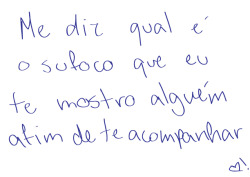 Me diz qual é
o sufoco que eu
te mostro alguém
afim de te acompanhar